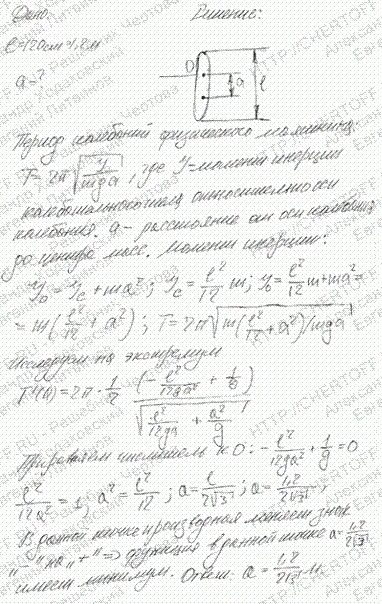 Дано: Решение:
l=120см=1,2м
a-?
O a l
Период колебаний физического маятника:
T=2π√(J/mga), где J-момент инерции
колебательного тела относительно оси
колебания. a - расстояние от оси колебания
до центра масс. Момент инерции:
J₀=J_c+ma²; J_c=l²/12 m; J₀=l²/12 m+ma²=
=m(l²/12+a²); T=2π√(m(l²/12+a²)/mga)
Исследуем на экстремум
T'(a)=2π·1/2 (-l²/12ga²+1/g)/√(l²/12ga+a²/g)
Приравняем числитель к 0: -l²/12ga²+1/g=0
l²/12a²=1, a²=l²/12; a=l/2√3; a=1,2/2√3;
В данной точке производная меняет знак
"-" на "+" => функция в данной точке a=1,2/2√3
имеет минимум. Ответ: a=1,2/2√3 м.